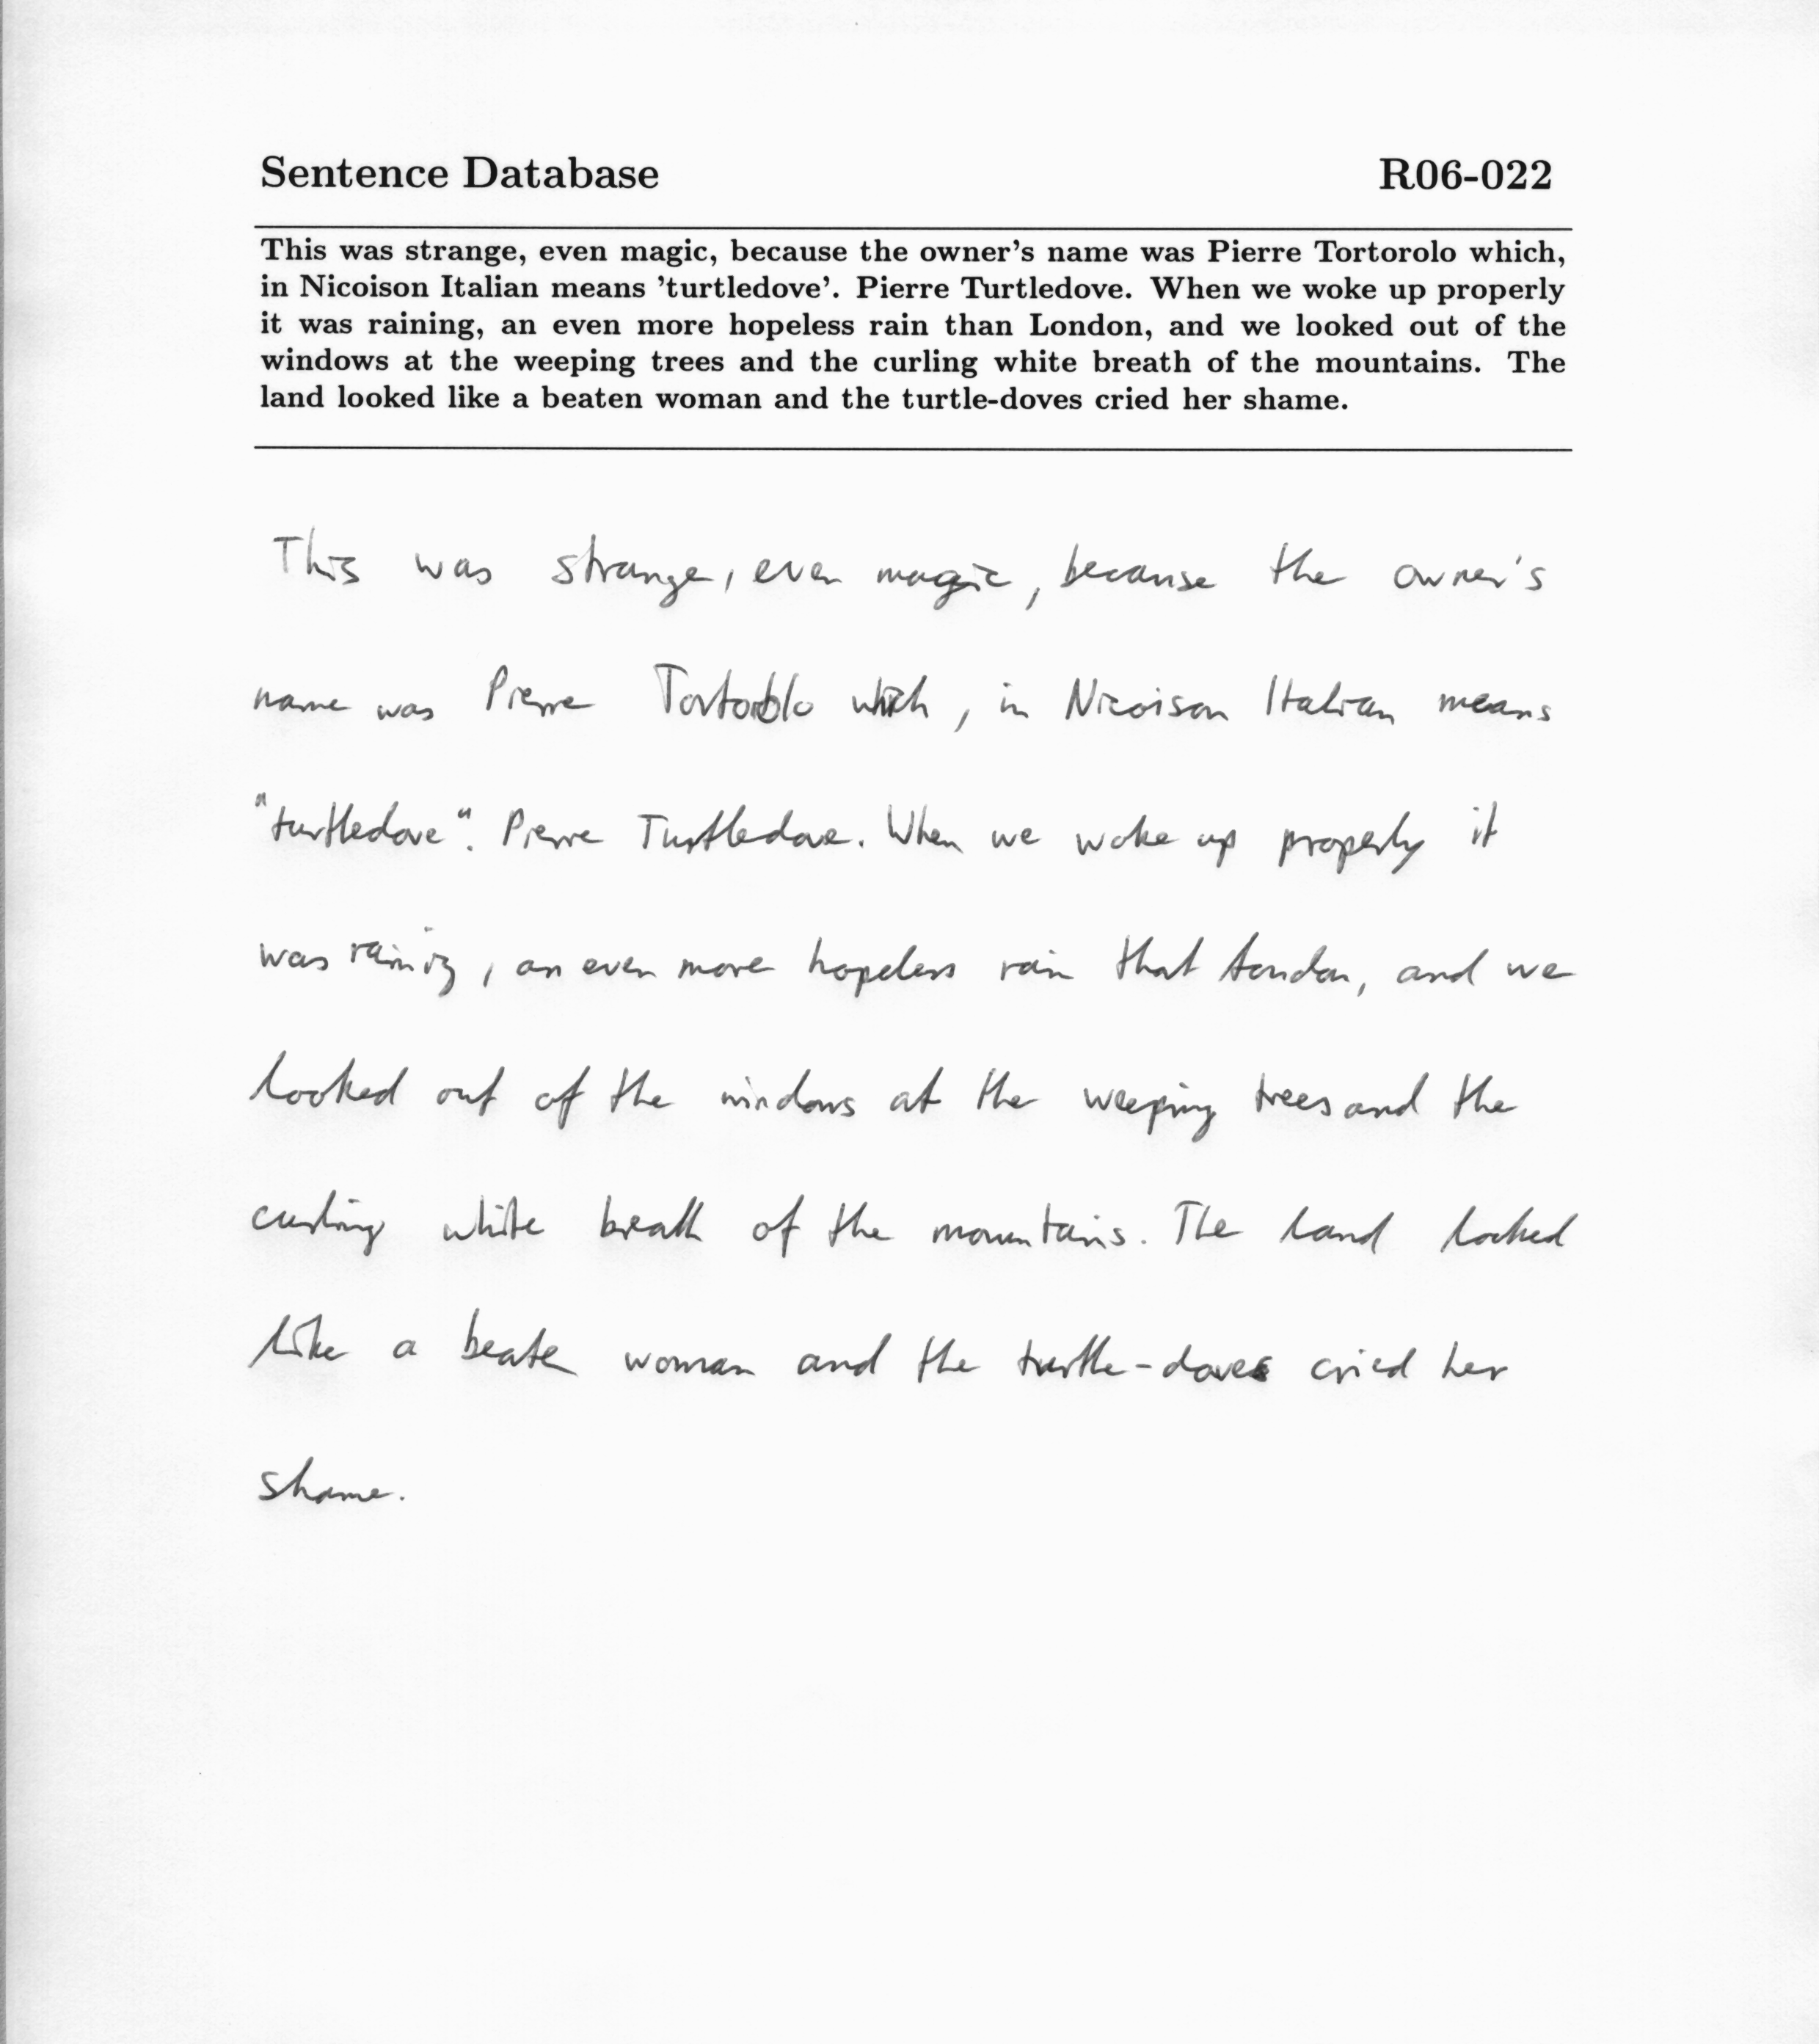 Sentence Database R06-022
This was strange, even magic, because the owner's name was Pierre Tortorolo which,
in Nicoison Italian means 'turtledove'. Pierre Turtledove. When we woke up properly
it was raining, an even more hopeless rain than London, and we looked out of the
windows at the weeping trees and the curling white breath of the mountains. The
land looked like a beaten woman and the turtle-doves cried her shame.
This was strange, even magic, because the owner's
name was Pierre Tortorolo which, in Nicoison Italian means
"turtledove". Pierre Turtledove. When we woke up properly it
was raining, an even more hopeless rain that London, and we
looked out of the windows at the weeping trees and the
curling white breath of the mountains. The land looked
like a beaten woman and the turtle-doves cried her
shame.